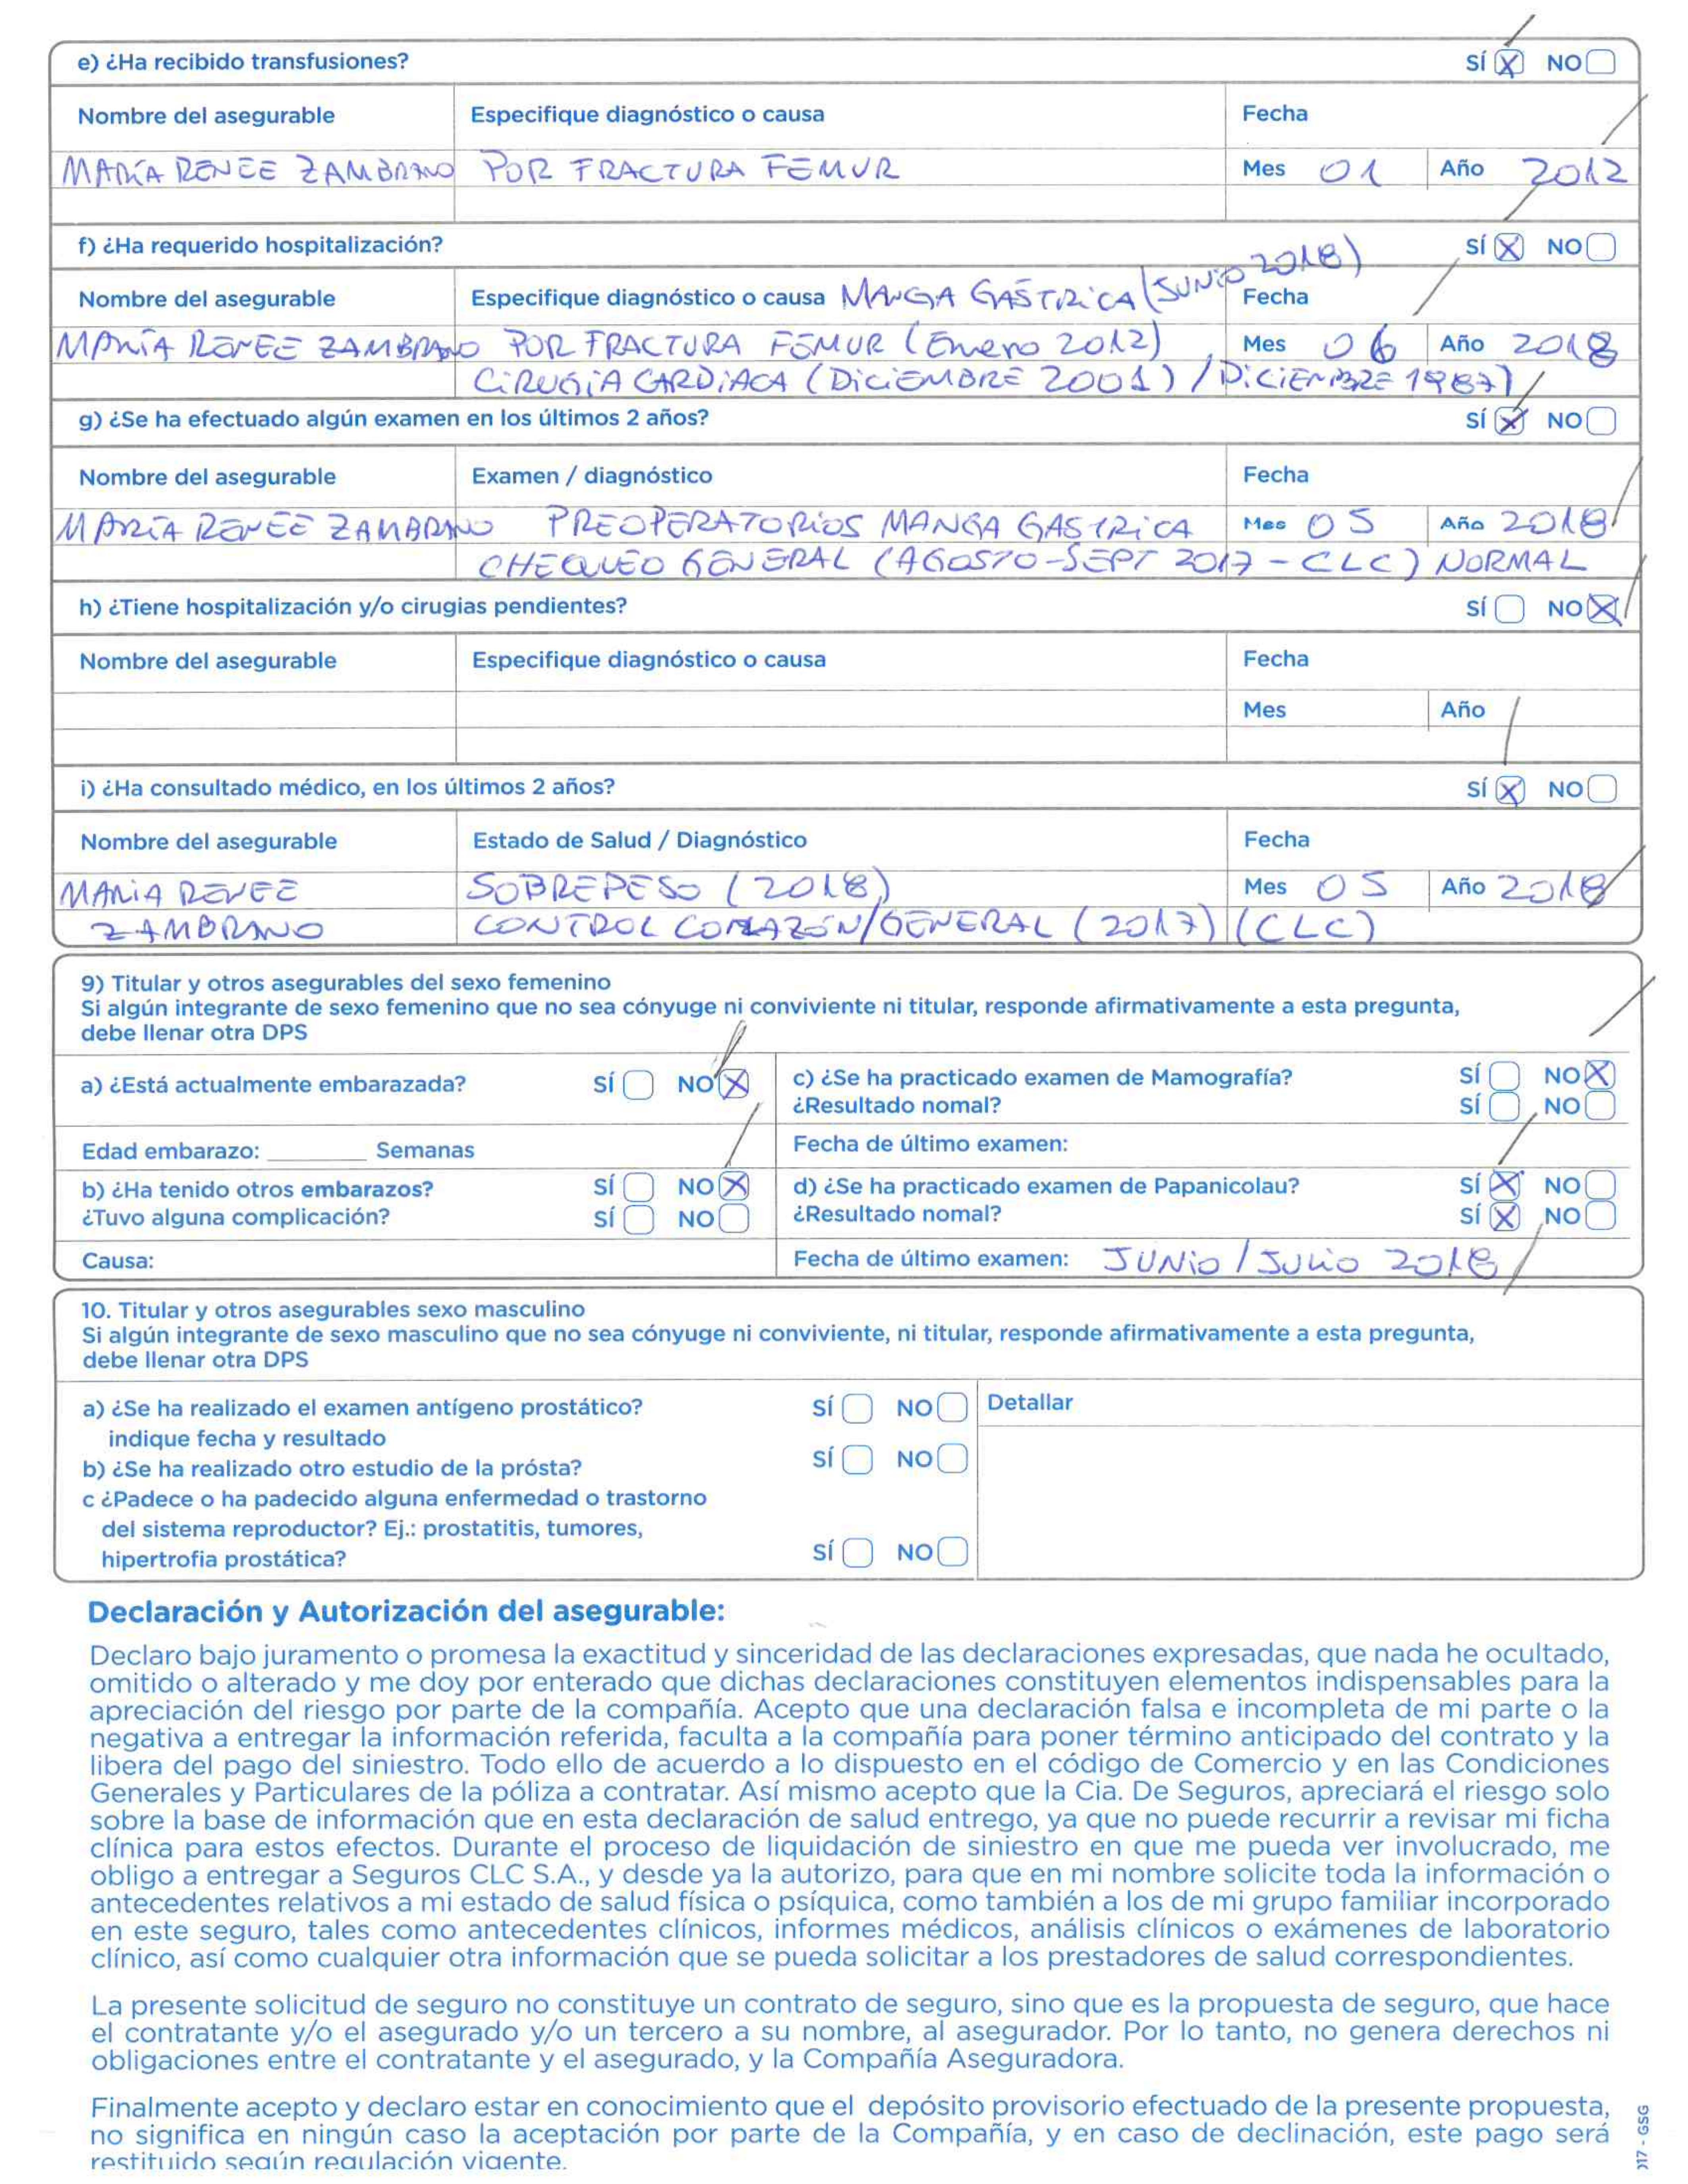 e) ¿Ha recibido transfusiones? SÍ X NO
Nombre del asegurable Especifique diagnóstico o causa Fecha
MARÍA RENEE ZAMBRANO POR FRACTURA FEMUR Mes 01 Año 2012
f) ¿Ha requerido hospitalización? SÍ X NO
Nombre del asegurable Especifique diagnóstico o causa MANGA GASTRICA (JUNIO 2018) Fecha
MARIA RENEE ZAMBRANO POR FRACTURA FEMUR (Enero 2012) Mes 06 Año 2018
CIRUGIA CARDIACA (DICIEMBRE 2001) / DICIEMBRE 1987)
g) ¿Se ha efectuado algún examen en los últimos 2 años? SÍ X NO
Nombre del asegurable Examen / diagnóstico Fecha
MARIA RENEE ZAMBRANO PREOPERATORIOS MANGA GASTRICA Mes 05 Año 2018
CHEQUEO GENERAL (AGOSTO-SEPT 2017 - CLC) NORMAL
h) ¿Tiene hospitalización y/o cirugias pendientes? SÍ NO X
Nombre del asegurable Especifique diagnóstico o causa Fecha
Mes Año
i) ¿Ha consultado médico, en los últimos 2 años? SÍ X NO
Nombre del asegurable Estado de Salud / Diagnóstico Fecha
MARIA RENEE SOBREPESO (2018) Mes 05 Año 2018
ZAMBRANO CONTROL CORAZÓN/GENERAL (2017) (CLC)
9) Titular y otros asegurables del sexo femenino
Si algún integrante de sexo femenino que no sea cónyuge ni conviviente ni titular, responde afirmativamente a esta pregunta,
debe llenar otra DPS
a) ¿Está actualmente embarazada? SÍ NO X c) ¿Se ha practicado examen de Mamografía? SÍ NO X
¿Resultado nomal? SÍ NO
Edad embarazo: ________ Semanas Fecha de último examen:
b) ¿Ha tenido otros embarazos? SÍ NO X d) ¿Se ha practicado examen de Papanicolau? SÍ X NO
¿Tuvo alguna complicación? SÍ NO ¿Resultado nomal? SÍ X NO
Causa: Fecha de último examen: JUNIO / JULIO 2018
10. Titular y otros asegurables sexo masculino
Si algún integrante de sexo masculino que no sea cónyuge ni conviviente, ni titular, responde afirmativamente a esta pregunta,
debe llenar otra DPS
a) ¿Se ha realizado el examen antígeno prostático? SÍ NO Detallar
indique fecha y resultado
b) ¿Se ha realizado otro estudio de la prósta? SÍ NO
c ¿Padece o ha padecido alguna enfermedad o trastorno
del sistema reproductor? Ej.: prostatitis, tumores,
hipertrofia prostática? SÍ NO
Declaración y Autorización del asegurable:
Declaro bajo juramento o promesa la exactitud y sinceridad de las declaraciones expresadas, que nada he ocultado,
omitido o alterado y me doy por enterado que dichas declaraciones constituyen elementos indispensables para la
apreciación del riesgo por parte de la compañía. Acepto que una declaración falsa e incompleta de mi parte o la
negativa a entregar la información referida, faculta a la compañía para poner término anticipado del contrato y la
libera del pago del siniestro. Todo ello de acuerdo a lo dispuesto en el código de Comercio y en las Condiciones
Generales y Particulares de la póliza a contratar. Así mismo acepto que la Cia. De Seguros, apreciará el riesgo solo
sobre la base de información que en esta declaración de salud entrego, ya que no puede recurrir a revisar mi ficha
clínica para estos efectos. Durante el proceso de liquidación de siniestro en que me pueda ver involucrado, me
obligo a entregar a Seguros CLC S.A., y desde ya la autorizo, para que en mi nombre solicite toda la información o
antecedentes relativos a mi estado de salud física o psíquica, como también a los de mi grupo familiar incorporado
en este seguro, tales como antecedentes clínicos, informes médicos, análisis clínicos o exámenes de laboratorio
clínico, así como cualquier otra información que se pueda solicitar a los prestadores de salud correspondientes.
La presente solicitud de seguro no constituye un contrato de seguro, sino que es la propuesta de seguro, que hace
el contratante y/o el asegurado y/o un tercero a su nombre, al asegurador. Por lo tanto, no genera derechos ni
obligaciones entre el contratante y el asegurado, y la Compañía Aseguradora.
Finalmente acepto y declaro estar en conocimiento que el depósito provisorio efectuado de la presente propuesta,
no significa en ningún caso la aceptación por parte de la Compañía, y en caso de declinación, este pago será
restituido según regulación vigente.
017 - GSG